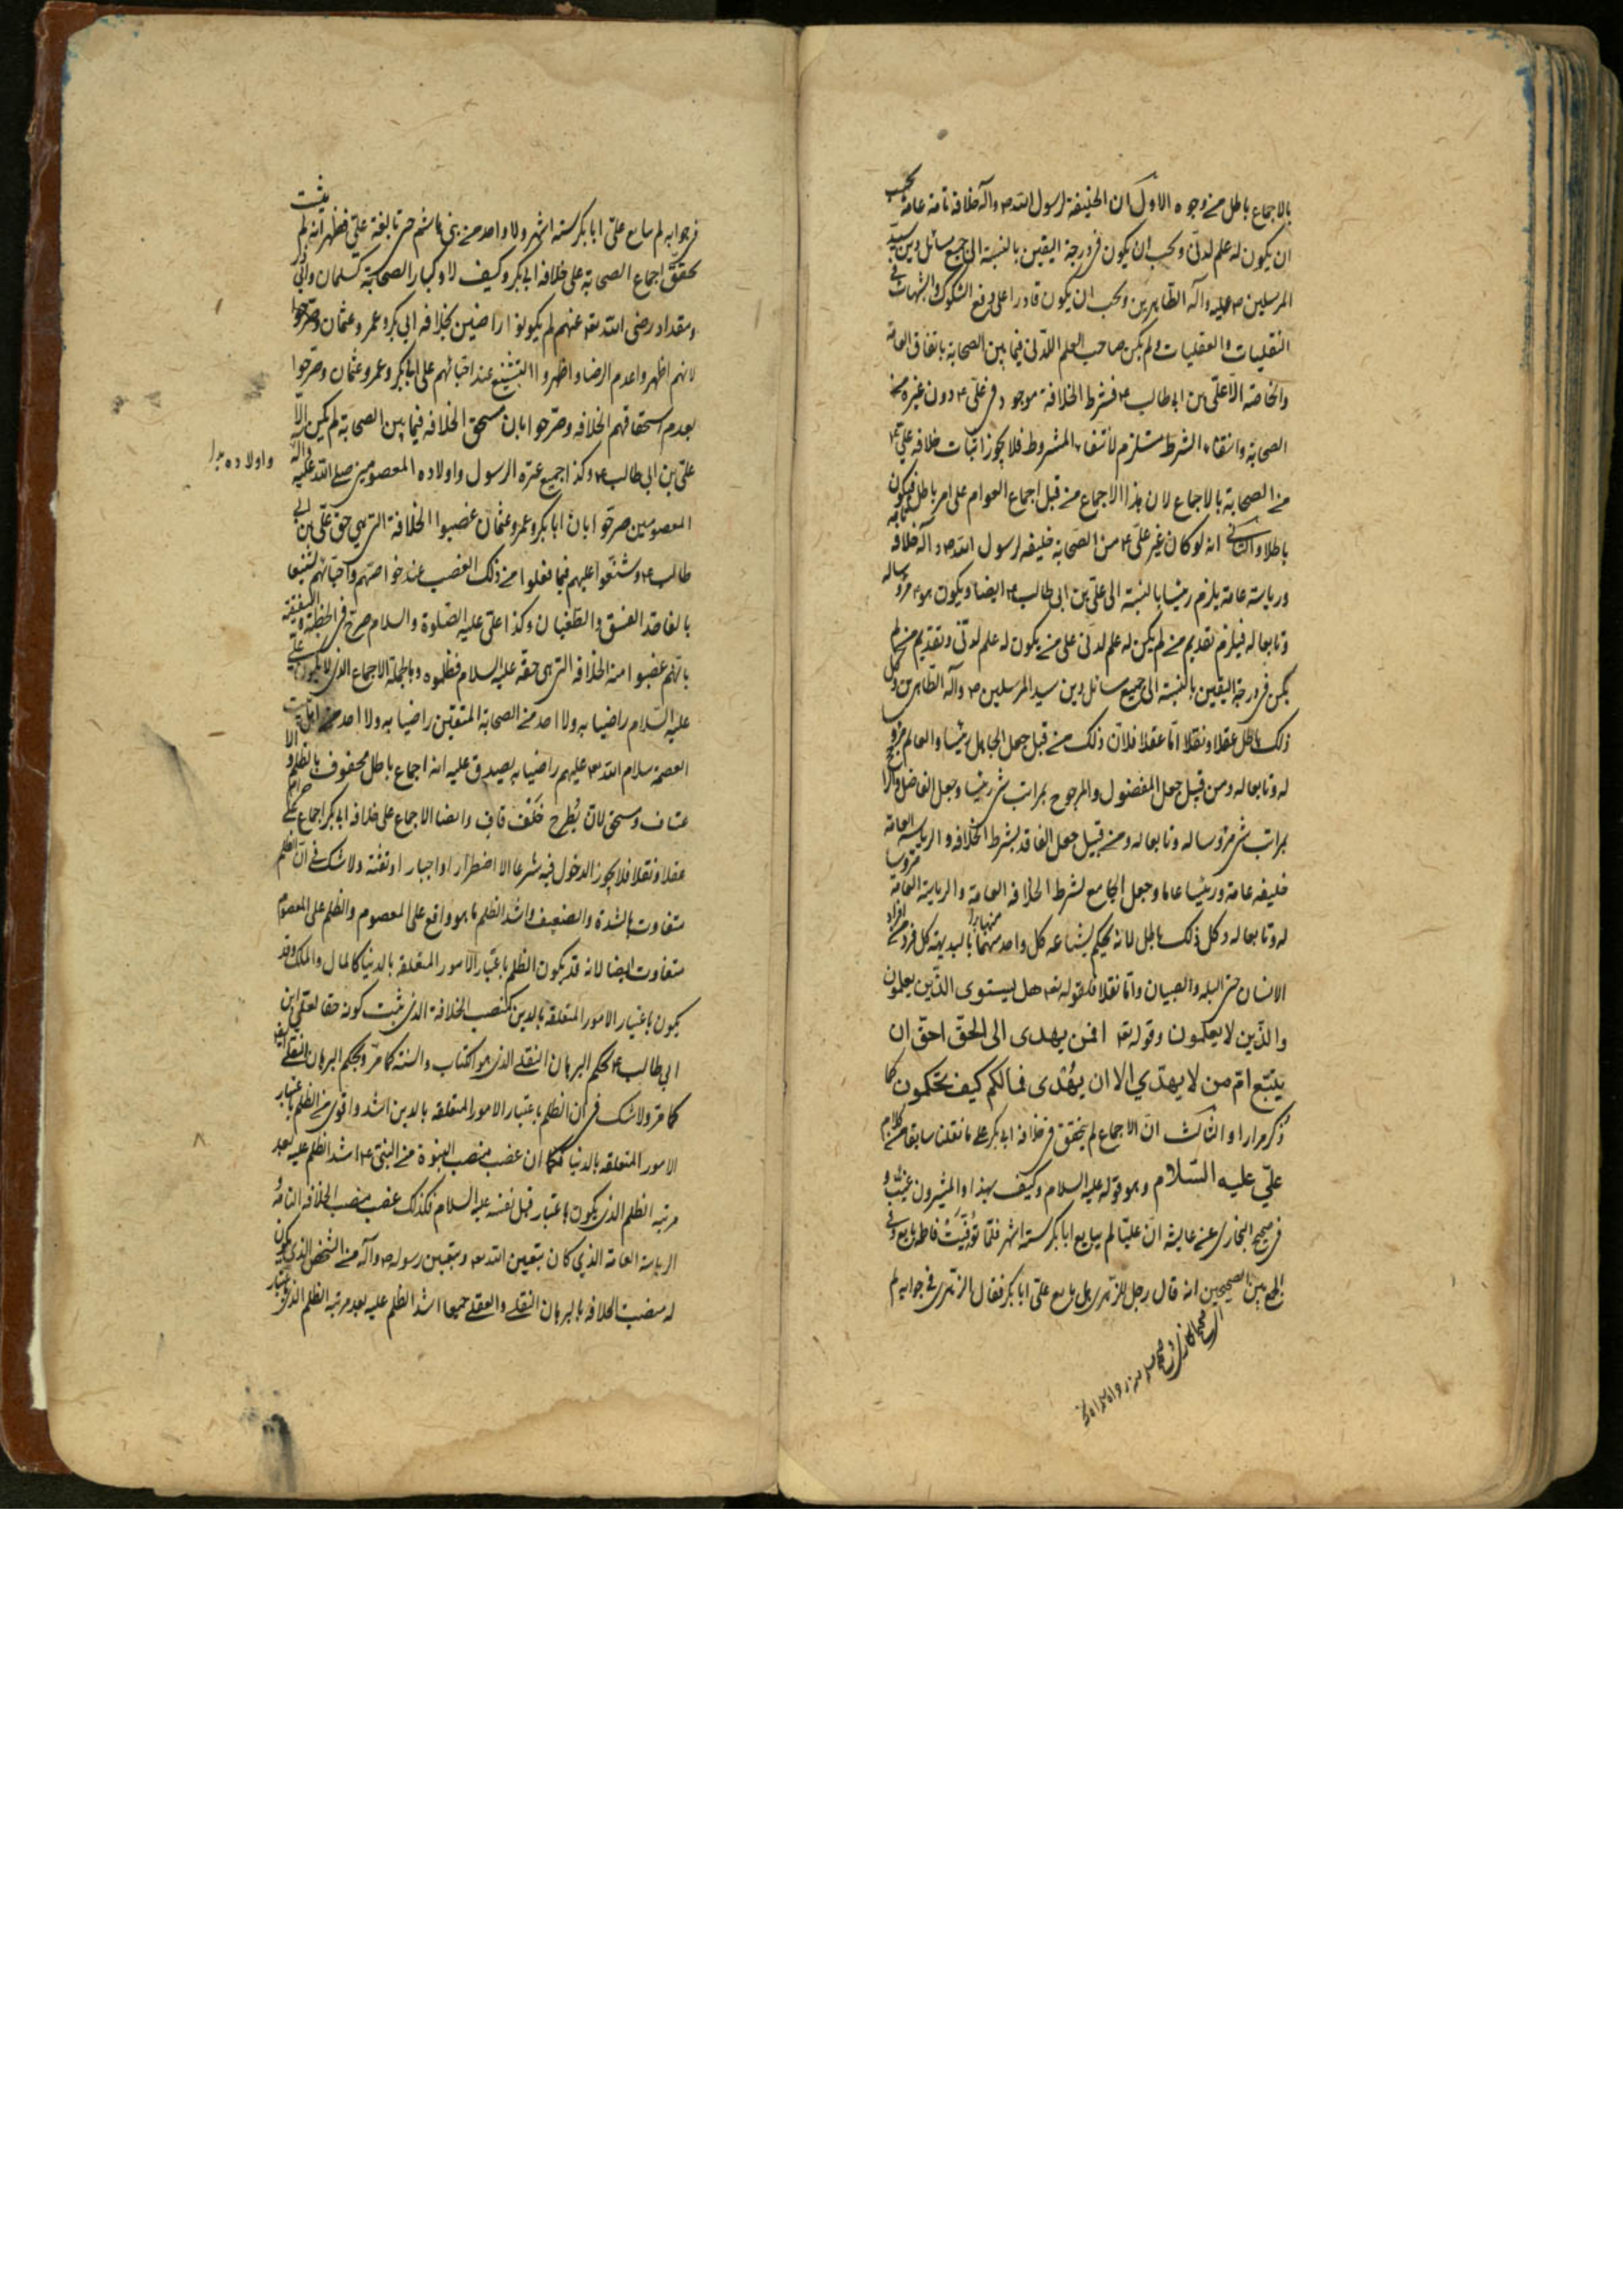 بالاجماع باطل من وجوه الاول ان الخليفة لرسول الله ص وآله خلافة تامة عامة يجب
ان يكون له علم لدنّى ويجب ان يكون فى درجة اليقين بالنسبة الى جميع مسائل دين سيّد
المرسلين ص عليه وآله الطاهرين ويجب ان يكون قادرا على دفع الشكوك والشبهات فى
النقليات والعقليات ولم يكن صاحب العلم اللدنى فيما بين الصحابة باتفاق العامة
والخاصة الّا علىّ بن ابى طالب ع فشرط الخلافة موجود فى علىّ ع دون غيره من
الصحابة وانتفاء الشرط مستلزم لأنتفاء المشروط فلا يجوز اثبات خلافة غير علىّ ع
من الصحابة بالاجماع لان هذا الاجماع من قبل اجماع العوام على امر باطل فيكون
باطلا والثانى انه لو كان غير علىّ ع من الصحابة خليفة لرسول الله ص وآله خلافة
ورياسة عامة يلزم رئيسا بالنسبة الى علىّ بن ابى طالب ع ايضا ويكون هو ع مرؤسا له
وتابعا له فيلزم تقديم من لم يكن له علم لدنّى على من يكون له علم لدنّى وتقديم من لم
يكن فى درجة اليقين بالنسبة الى جميع مسائل دين سيد المرسلين ص وآله الطاهرين وكل
ذلك باطل عقلا ونقلا امّا عقلا فلانّ ذلك من قبل جعل الجاهل رئيسا والعالم مرؤسا
له وتابعا له ومن قبيل جعل المفضول والمرجوح بمراتب شتى رئيسا وجعل الفاضل والراجح
بمراتب شتى مرؤسا له وتابعا له ومن قبيل جعل الفاقد لشرط الخلافة والرياسة العامة
خليفة عامة ورئيسا عاما وجعل الجامع لشرط الخلافة العامة والرياسة العامة مرؤسا
له وتابعا له وكل ذلك باطل لانه يحكم بشناعة كل واحد منهما بالبديهة كل فرد من افراد
الانسان حتى البله والصبيان وامّا نقلا فلقوله تع هل يستوى الذّين يعلمون
والذّين لا يعلمون وقوله تع افمن يهدى الى الحقّ احقّ ان
يتبّع امّ من لا يهدّي الا ان يهُدى فمالكم كيف تحكمون كما
ذكر مرارا والثالث انّ الاجماع لم يتحقق فى خلافة ابى بكر على ما نقلنا سابقا من كلام
علىّ عليه السّلام وهو قوله عليه السلام وكيف بهذا والمشيرون غيّب و
فى صحيح البخارى عن عايشة انّ عليّا لم يبايع ابا بكر ستة اشهر فلمّا تُوفّيَتْ فاطمة بايع وفى
الجمع بين الصحيحين انه قال رجل للزهرى هل بايع علىّ ابا بكر فقال الزهرى فى جوابه لم
فى جوابه لم يبايع علىّ ابا بكر ستة اشهر ولا واحد من بنى هاشم حتى تابعة علىّ فظهر انه لم يثبت
تحقق اجماع الصحابة على خلافة ابى بكر وكيف لا وكبار الصحابة كسلمان وابى ذر
ومقداد رضى الله تع عنهم لم يكونوا راضين بخلافة ابى بكر وعمر وعثمان
لانهم اظهروا عدم الرضا واظهروا التشنيع عند احبّائهم على ابا بكر وعمر وعثمان وصرّحوا
بعدم استحقاقهم الخلافة وصرّحوا بان مستحق الخلافة فيما بين الصحابة لم يكن الّا
علىّ بن ابى طالب ع وكذا جميع عترة الرسول واولاده المعصومين صلى الله عليه وآله
واولاده
المعصومين صرحّوا بانّ ابا بكر وعمر وعثمان غصبوا الخلافة التى هى حق علىّ بن ابى
طالب ع وشنّعوا عليهم فيما فعلوا من ذلك الغصب عند خواصّهم واحبّائهم تشنيعا
بالغا حدّ الفسق والطّغيان وكذا علىّ عليه الصّلوة والسلام صرّح فى الخطبة الشقشقية
بانّهم غصبوا منه الخلافة التى هى حقّه عليه السلام فظلموه وبالجملة الاجماع الذى لا يكون علىّ
عليه السّلام راضيا به ولا احد من الصحابة المتقين راضيا به ولا احد من اهل بيت
العصمة سلام الله تع عليهم راضيا به يصدق عليه انه اجماع باطل محفوف بالظلم و
عتاف ومستحق لان يُطرح خَلْف قاف وايضا الاجماع على خلافة ابى بكر اجماع على حرام
عقلا ونقلا فلا يجوز الدخول فيه شرعا الا اضطرارا واجبارا وتقيّة ولا شك فى انّ الظلم
متفاوت بالشدة والضعف واشدّ الظلم ما هو واقع على المعصوم والظلم على المعصوم
متفاوت ايضا لانه قد يكون الظلم باعتبار الامور المتعلقة بالدنيا كالمال والملك وقد
يكون باعتبار الامور المتعلقة بالدين كمنصب الخلافة الذى ثبت كونه حقا لعلىّ بن
ابى طالب ع بحكم البرهان النقلى الذى هو الكتاب والسنة كما مرّ وبحكم البرهان العقلى ايضا
كما مرّ ولا شك فى ان الظلم باعتبار الامور المتعلقة بالدين اشد واقوى من الظلم باعتبار
الامور المتعلقة بالدنيا فكما ان غصب منصب النبوة من النبى ص اشد الظلم عليه بعد
مرتبة الظلم الذى يكون باعتبار قتل نفسه عليه السلام فكذلك غصب منصب الخلافة التامة
الرياسة العامة الذي كان بتعيين الله تع وبتعيين رسوله ص وآله من الشخص الذى يكون
له منصب الخلافة بالبرهان النقلى والعقلى جميعا اشد الظلم عليه بعد مرتبة الظلم الذى باعتبار